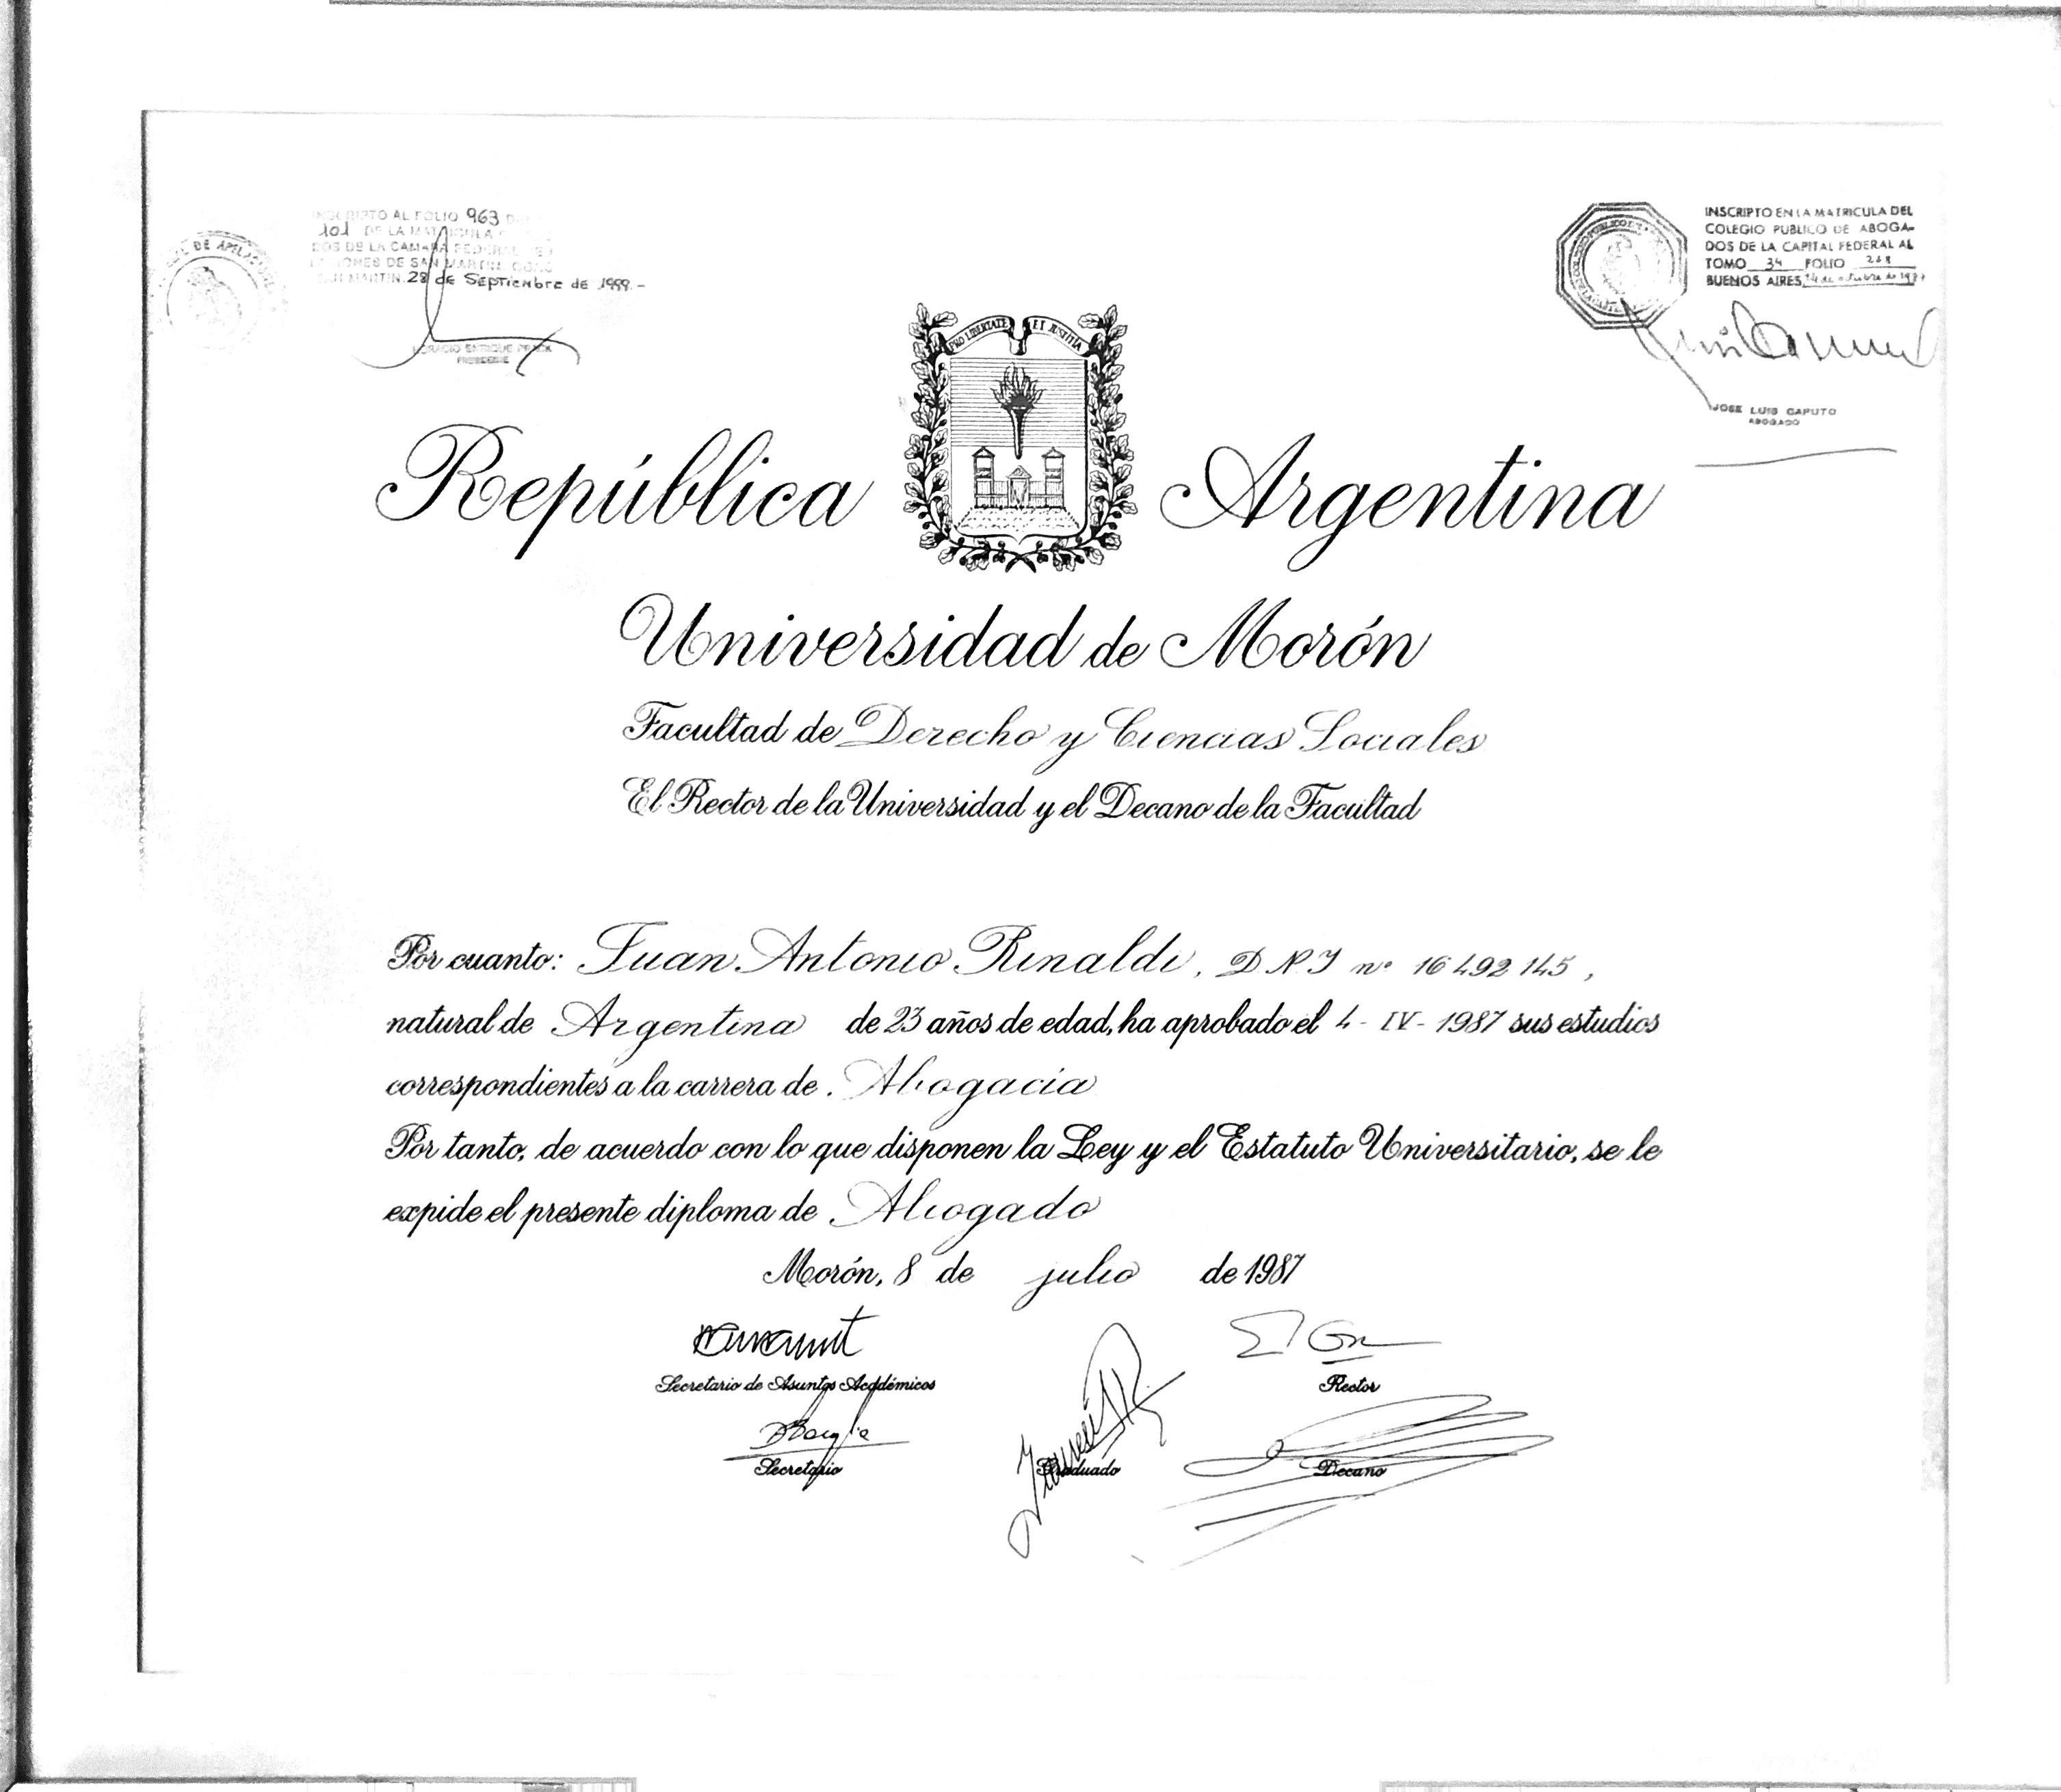 INSCRIPTO AL FOLIO 963
101 DE LA MATRICULA
DOS DE LA CAMARA FEDERAL DE
SAN MARTIN. 28 de Septiembre de 1999.-
HORACIO ENRIQUE PRACK
PRESIDENTE
DE APELACIONES
INSCRIPTO EN LA MATRICULA DEL
COLEGIO PUBLICO DE ABOGA-
DOS DE LA CAPITAL FEDERAL AL
TOMO 34 FOLIO 268
BUENOS AIRES, 14 de octubre de 1987
JOSE LUIS CAPUTO
ABOGADO
PRO LIBERTATE ET JUSTITIA
República Argentina
Universidad de Morón
Facultad de Derecho y Ciencias Sociales
El Rector de la Universidad y el Decano de la Facultad
Por cuanto: Juan Antonio Rinaldi, D.N.I nº 16492145,
natural de Argentina de 23 años de edad, ha aprobado el 4-IV-1987 sus estudios
correspondientes a la carrera de Abogacía
Por tanto, de acuerdo con lo que disponen la Ley y el Estatuto Universitario, se le
expide el presente diploma de Abogado
Morón, 8 de julio de 1987
Secretario de Asuntos Académicos
Rector
Secretario
Graduado
Decano